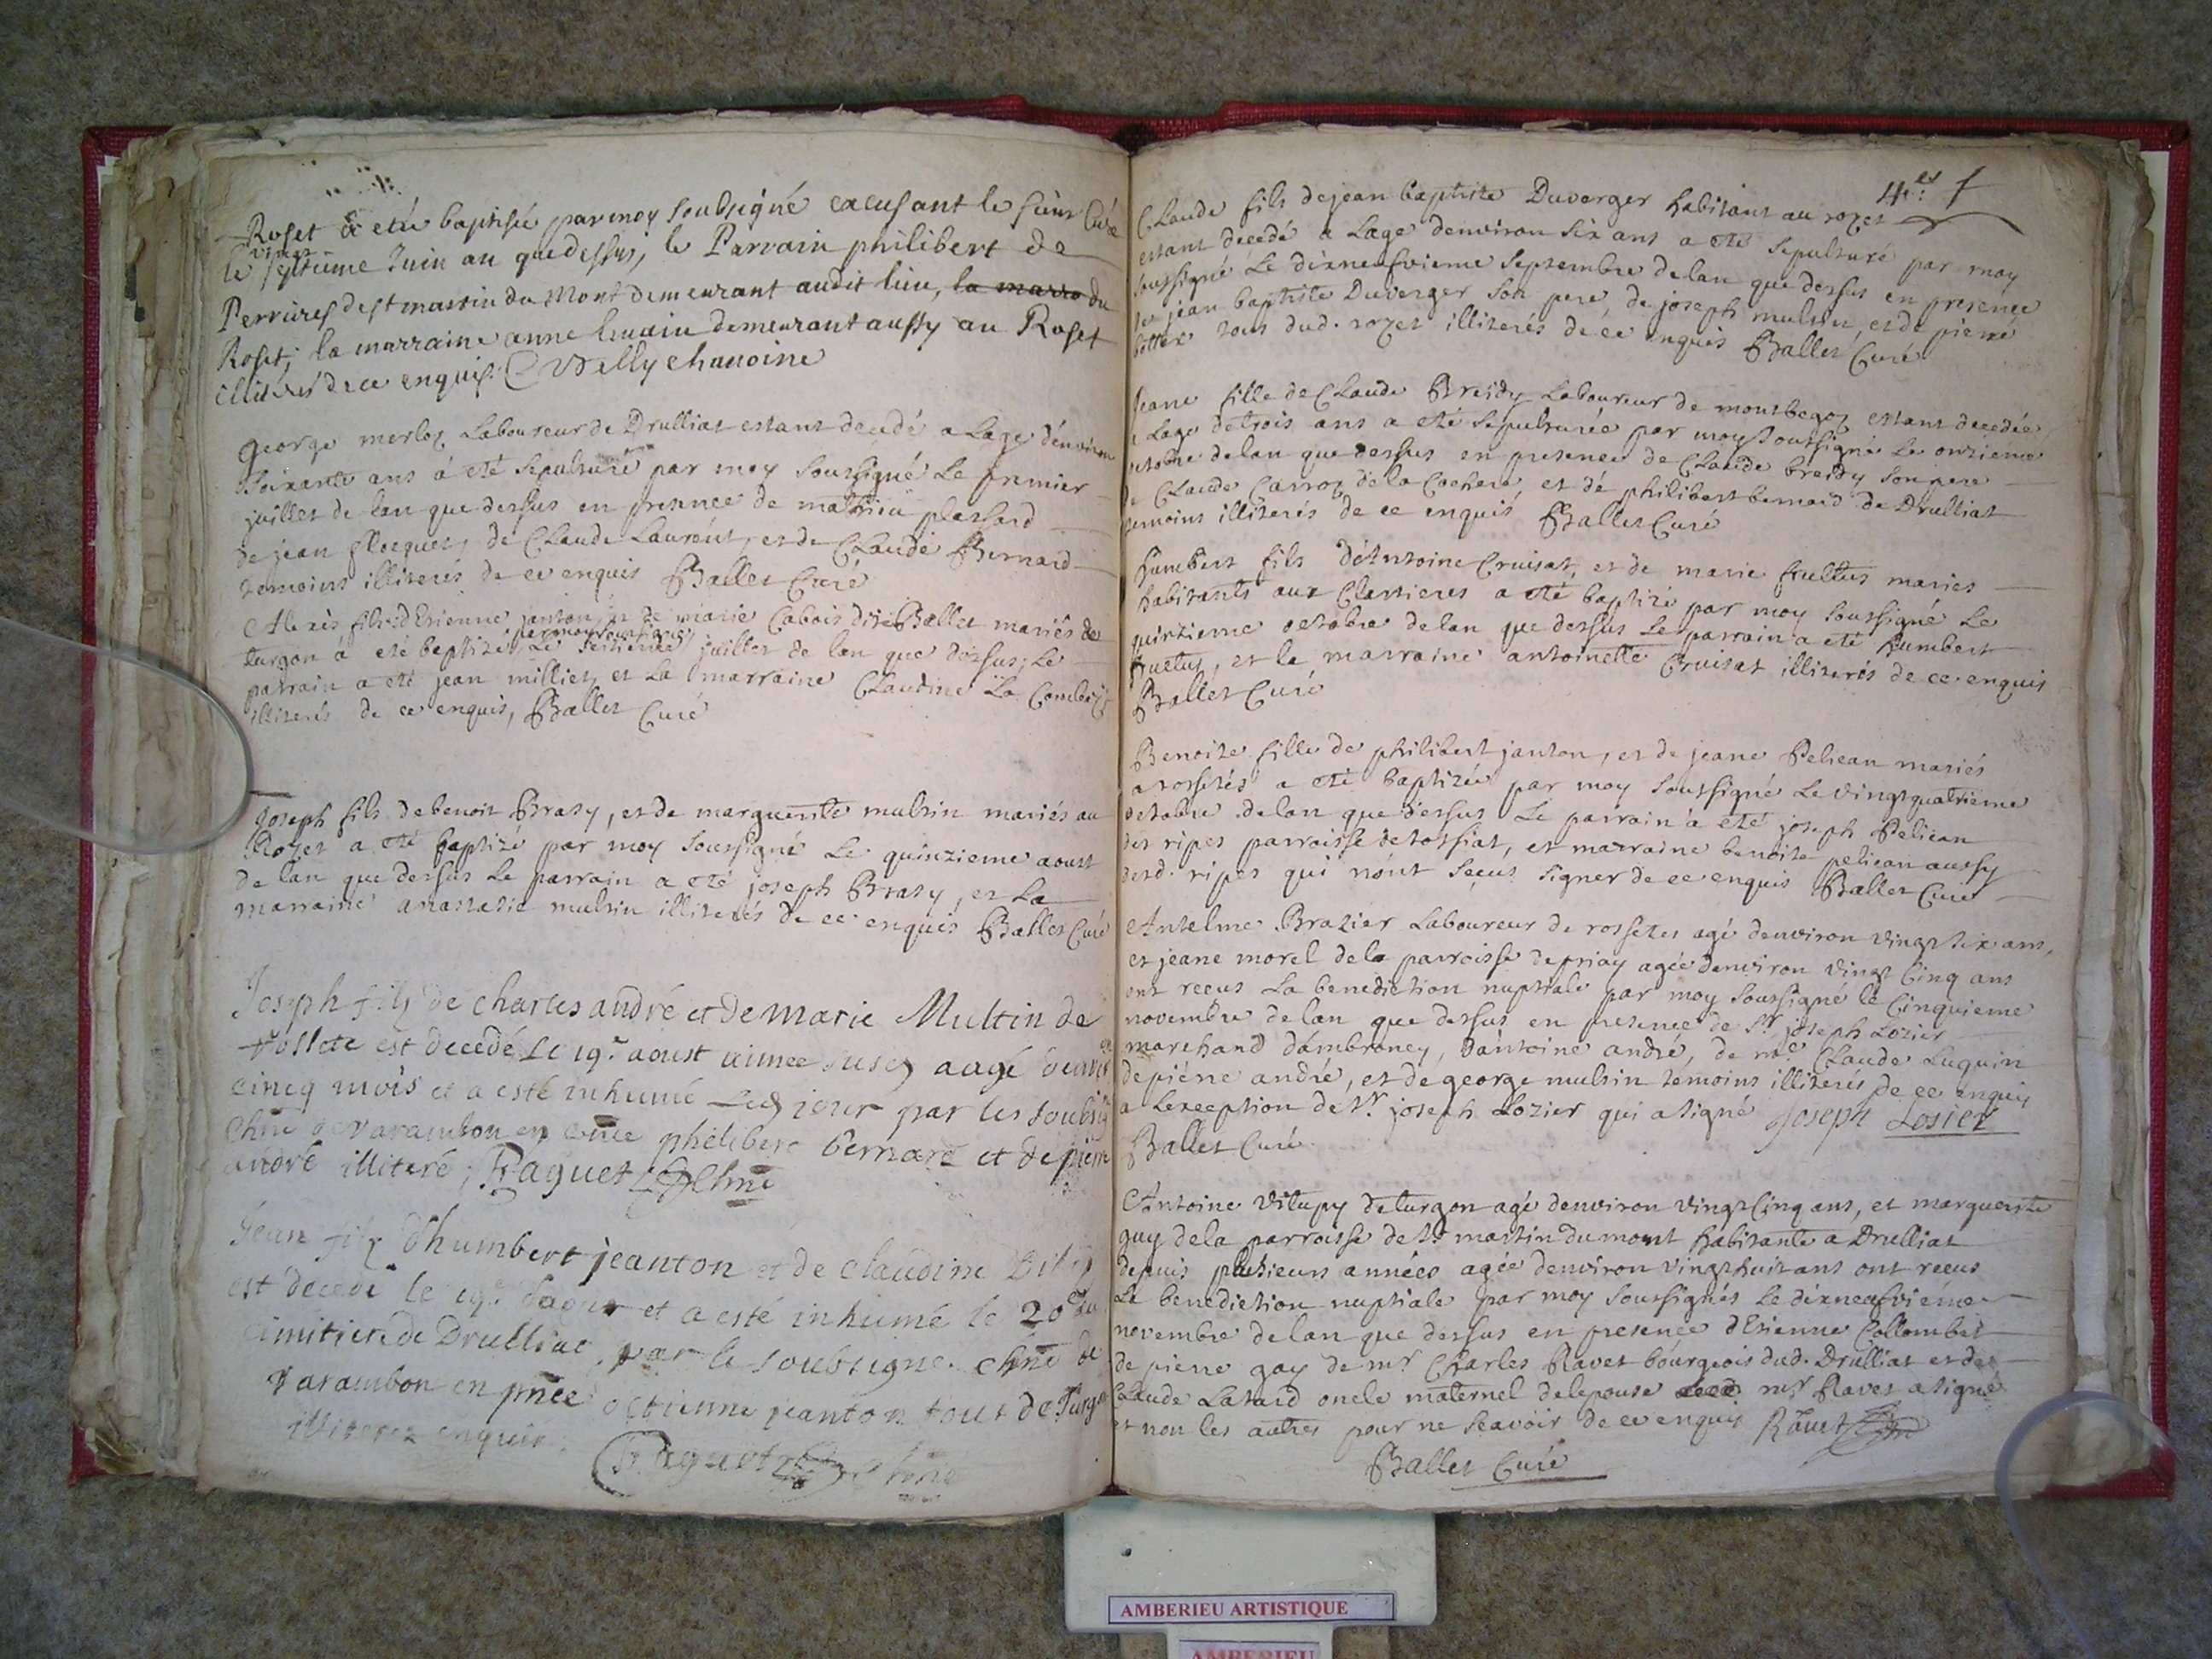 Roset a eté baptisée par moy soubsigné excusant le sieur Curé
le vingt septième Juin an que dessus, le Parrain philibert de
Perrieres de st martin du Mont demeurant audit lieu, la marra du
Roset; la marraine anne demeurant aussy au Roset
illiterés de ce enquis. Velly chanoine
george merloz Laboureur de Drulliat estant decedé a Lage d'environ
Soixante ans à eté sepulturé par moy soussigné Le premier
juillet de lan que dessus en presence de mathieu plassard
de jean flocquet, de Claude Laurént, et de Claude Bernard
temoins illiterés de ce enquis Ballet Curé
Alexis fils d'Etienne janton, et de marie Cabois dite Ballet mariés de
turgon a eté baptizé par moy soussigné Le septieme juillet de lan que dessus; Le
parrain a eté jean milliet, et La marraine Claudine La
illiterés de ce enquis, Ballet Curé
Joseph fils de benoit Brasy, et de marguerite multin mariés au
Rozet a eté baptizé par moy soussigné Le quinzieme aoust
de lan que dessus Le parrain a eté joseph Brasy, et La
marraine anastasie multin illiterés de ce enquis Ballet Curé
Joseph fils de charles andré et de marie Multin de
est decedé Le 19e aoust aagé
cincq mois et a esté inhumé jour par les soubsig
chne de varambon en philibert bernard et de pierre
andré illiteré; Raguet Chne
Jean fils d'humbert jeanton et de claudine
est decedé le 19e et a esté inhumé le 20e du
cimitiere de Drulliat, par le soubsigné chne de
varambon en pnce etienne jeanton tous de Turgon
illiterez enquis. Raguet Chne
4es f
Claude fils de jean baptiste Duverger habitant au rozet
estant decedé a Lage denviron six ans a eté sepulturé par moy
soussigné Le dixneufvieme septembre de lan que dessus en presence
de jean baptiste Duverger son pere, de joseph multin, et de pierre
bottex tous dud. rozet illiterés de ce enquis Ballet Curé
Jeane fille de Claude Breidy Laboureur de montbegoz estant decedée
a Lage de trois ans a eté sepulturée par moy soussigné Le onzieme
octobre de lan que dessus en presence de Claude breidy son pere
de Claude Carroz de la Cochere et de philibert bernard de Drulliat
temoins illiterés de ce enquis Ballet Curé
humbert fils d'Antoine Cruisat, et de marie fruttus mariés
habitants aux Classieres a eté baptizé par moy soussigné Le
quinzieme octobre de lan que dessus Le parrain a eté humbert
fruttus, et la marraine antoinette Cruisat illiterés de ce enquis
Ballet Curé
Benoite fille de philibert janton, et de jeane Pelican mariés
a rossetes a eté baptizée par moy soussigné Le vingtquatrieme
octobre de lan que dessus Le parrain a eté joseph Pelican
des ripes parroisse de tossiat, et marraine benoite pelican aussy
desd. ripes qui n'ont sceus signer de ce enquis Ballet Curé
Antelme Brazier Laboureur de rossetes agé denviron vingt six ans,
et jeane morel de la parroisse de priay agée denviron vingt cinq ans
ont receus La benediction nuptiale par moy soussigné le Cinquieme
novembre de lan que dessus en presence de Sr joseph Lozier
marchand d'ambroney, d'antoine andré, de me Claude Luquin
de pierre andré, et de george multin témoins illiterés de ce enquis
a Lexception de Sr joseph Lozier qui a signé Joseph Losier
Ballet Curé
Antoine vitupy de turgon agé denviron vingt Cinq ans, et marguerite
guy de la parroisse de St martin du mont habitante a Drulliat
depuis plusieurs années agée denviron vingt huit ans ont receus
La benediction nuptiale par moy soussignés Le dixneufvieme
novembre de lan que dessus en presence d'Etienne Collombet
de pierre gay de mr Charles Ravet bourgeois dud. Drulliat et de
Claude Latard oncle maternel de lepouse mr Ravet a signé
et non les autres pour ne scavoir de ce enquis Ravet
Ballet Curé
AMBERIEU ARTISTIQUE
AMBERIEU